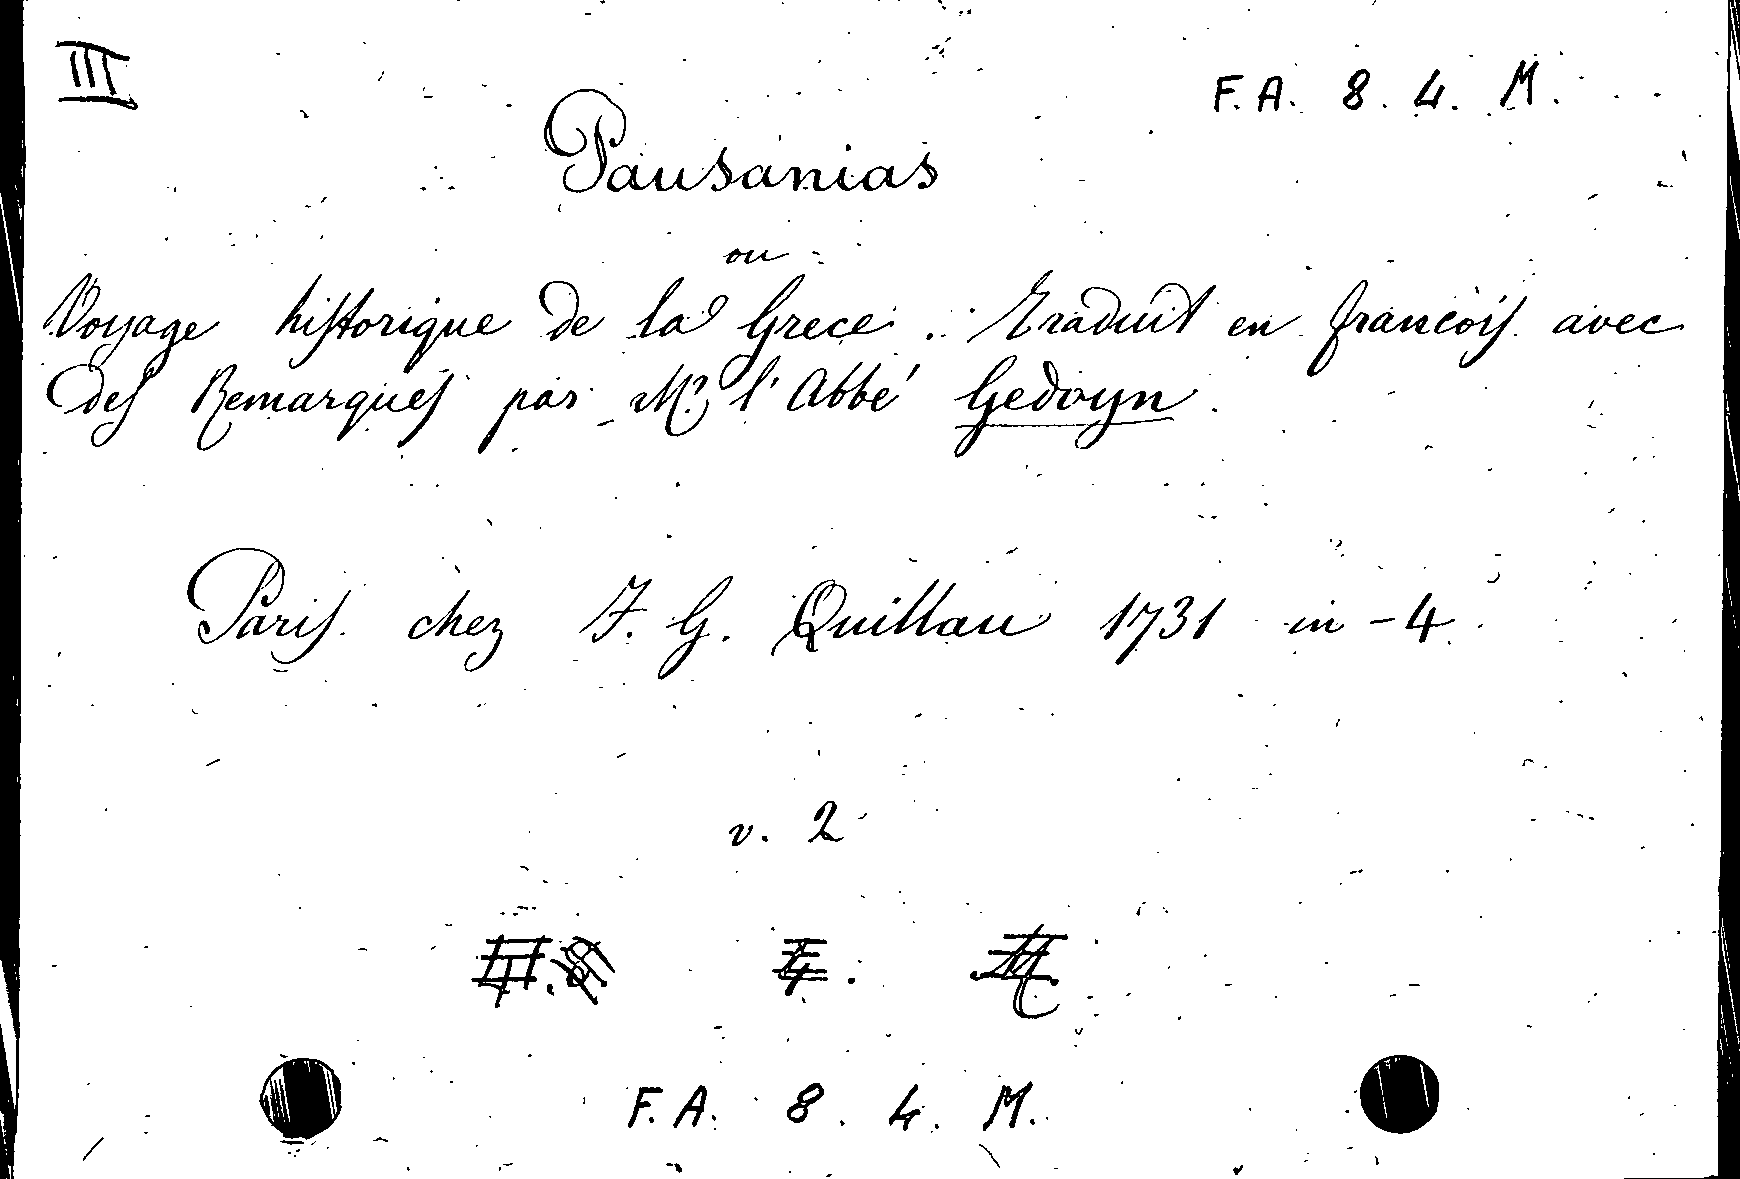 III
F. A. 8. 4. M.
Pausanias
ou
Voyage historique de la Grece. Traduit en françois avec
des Remarques par Mr. l'Abbé Gedoyn.
Paris chez F. G. Quillau 1731 in-4
v. 2
F. A. 8. 4. M.